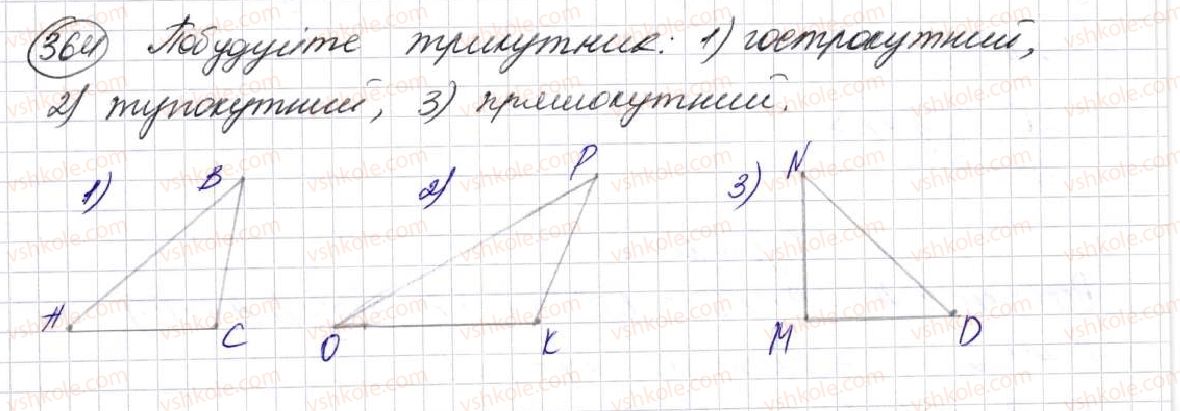 364 Побудуйте трикутник: 1) гострокутний,
2) тупокутний, 3) прямокутний.
1) B 2) P 3) N
A C O K M D
vshkole.com